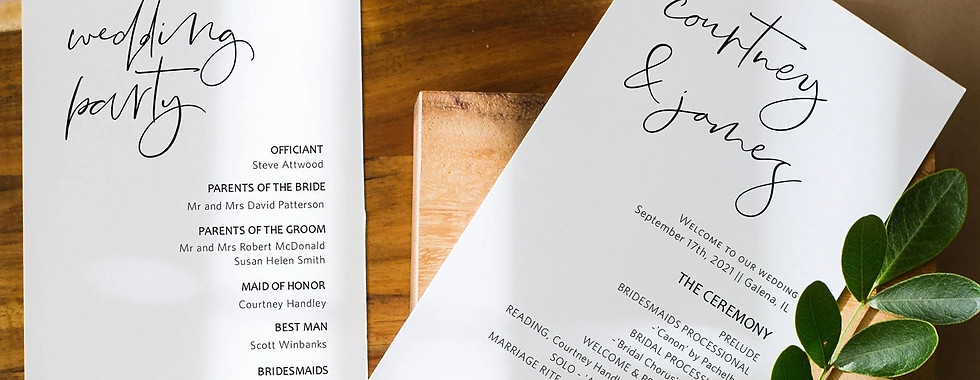 wedding
party
OFFICIANT
Steve Attwood
PARENTS OF THE BRIDE
Mr and Mrs David Patterson
PARENTS OF THE GROOM
Mr and Mrs Robert McDonald
Susan Helen Smith
MAID OF HONOR
Courtney Handley
BEST MAN
Scott Winbanks
BRIDESMAIDS
courtney
& james
WELCOME TO OUR WEDDING
September 17th, 2021 || Galena, IL
THE CEREMONY
PRELUDE
BRIDESMAIDS PROCESSIONAL
-'Canon' by
BRIDAL
-'Bridal Chorus'
WELCOME &
READING, Courtney
SOLO - 
MARRIAGE